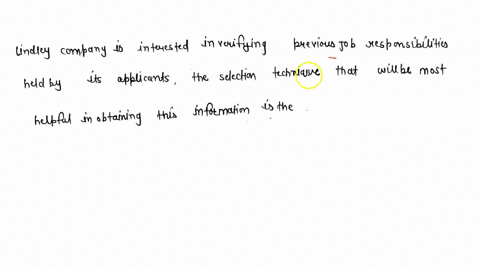 Lindley company is interested in verifying previous job responsibilities
held by its applicants, the selection technique that will be most
helpful in obtaining this information is the